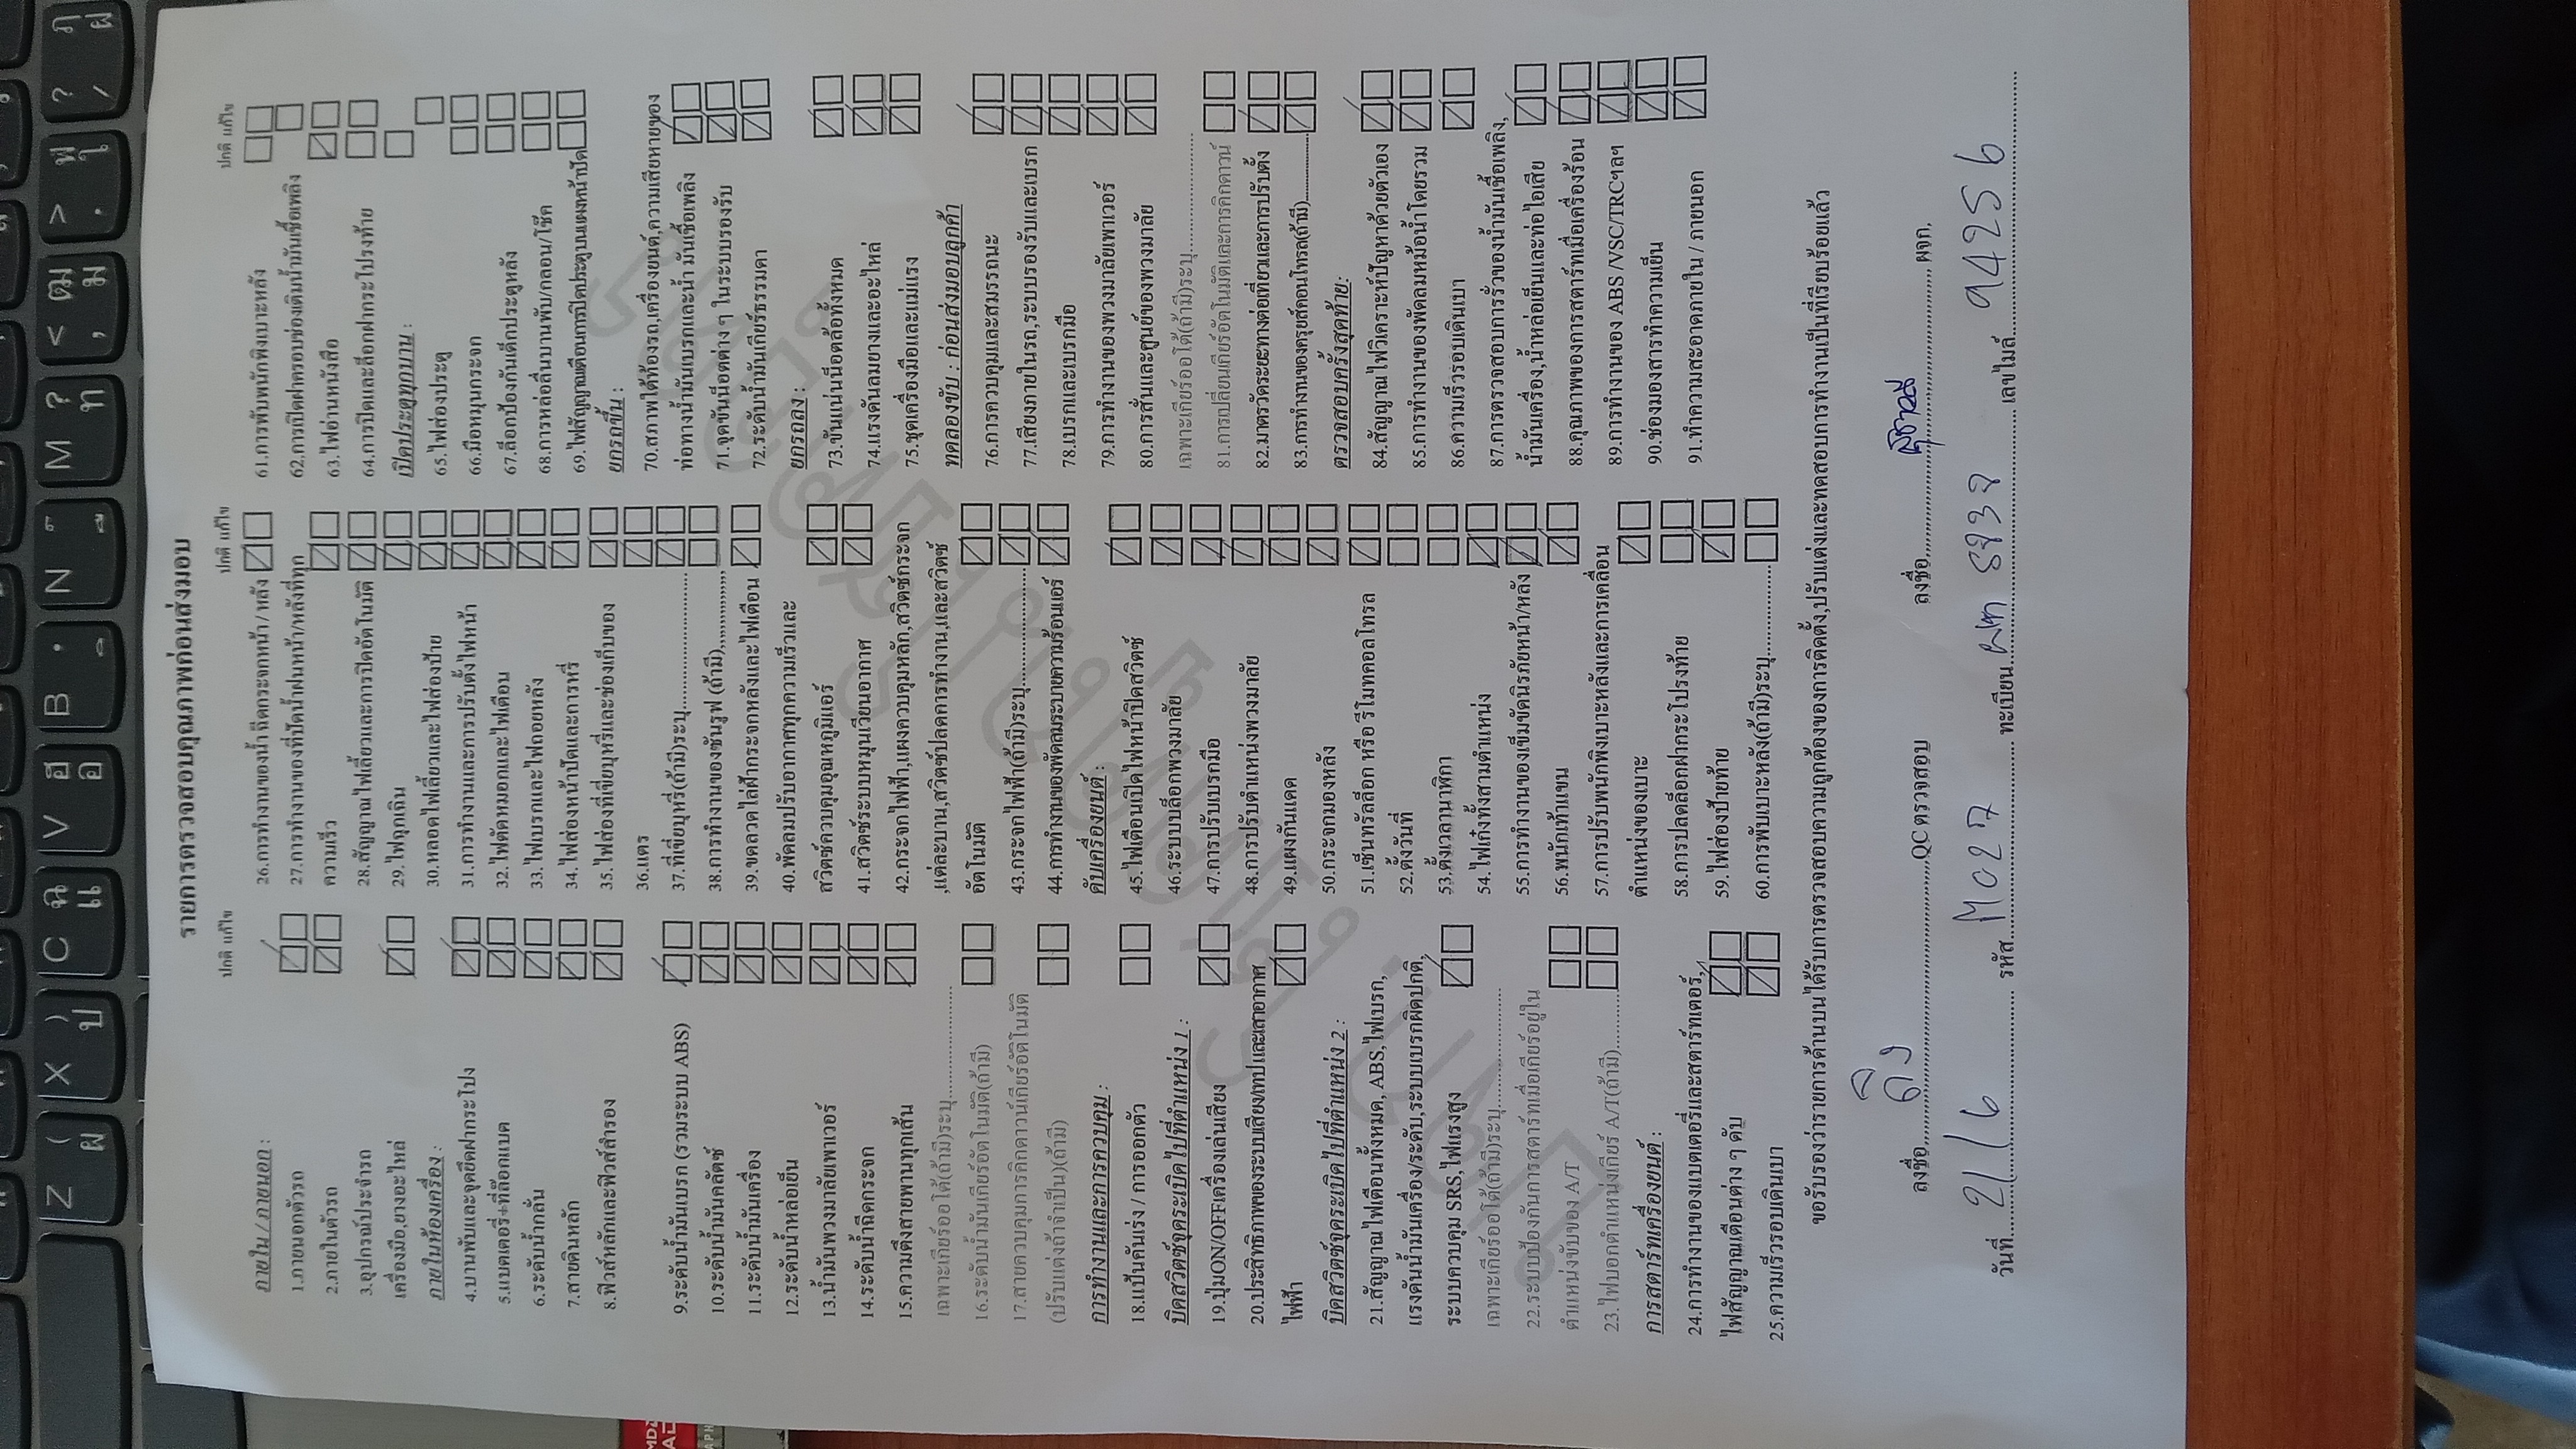 รายการตรวจสอบคุณภาพก่อนส่งมอบ
ปกติ แก้ไข
ภายใน / ภายนอก :
1.ภายนอกตัวรถ
2.ภายในตัวรถ
3.อุปกรณ์ประจำรถ
เครื่องมือ,ยางอะไหล่
ภายในห้องเครื่อง :
4.บานพับและจุดยึดฝากระโปง
5.แบตเตอรี่+ที่ล๊อกแบต
6.ระดับน้ำกลั่น
7.สายดินหลัก
8.ฟิวส์หลักและฟิวส์สำรอง
9.ระดับน้ำมันเบรก (รวมระบบ ABS)
10.ระดับน้ำมันคลัตซ์
11.ระดับน้ำมันเครื่อง
12.ระดับน้ำหล่อเย็น
13.น้ำมันพวงมาลัยเพาเวอร์
14.ระดับน้ำฉีดกระจก
15.ความตึงสายพานทุกเส้น
เฉพาะเกียร์ออโต้(ถ้ามี)ระบุ
16.ระดับน้ำมันเกียร์อัตโนมัติ(ถ้ามี)
17.สายควบคุมการคิกดาวน์เกียร์อัตโนมัติ
(ปรับแต่งถ้าจำเป็น)(ถ้ามี)
การทำงานและการควบคุม :
18.แป้นคันเร่ง / การออกตัว
บิดสวิตซ์จุดระเบิดไปที่ตำแหน่ง 1 :
19.ปุ่มON/OFFเครื่องเล่นเสียง
20.ประสิทธิภาพของระบบเสียง/เทปและเสาอากาศ
ไฟฟ้า
บิดสวิตซ์จุดระเบิดไปที่ตำแหน่ง 2 :
21.สัญญาณไฟเตือนทั้งหมด, ABS,ไฟเบรก,
แรงดันน้ำมันเครื่อง/ระดับ,ระบบเบรกผิดปกติ,
ระบบควบคุม SRS,ไฟแรงสูง
เฉพาะเกียร์ออโต้(ถ้ามี)ระบุ
22.ระบบป้องกันการสตาร์ทเมื่อเกียร์อยู่ใน
ตำแหน่งขับของ A/T
23.ไฟบอกตำแหน่งเกียร์ A/T(ถ้ามี)
การสตาร์ทเครื่องยนต์ :
24.การทำงานของแบตเตอรี่และสตาร์ทเตอร์,
ไฟสัญญาณเตือนต่าง ๆ ดับ
25.ความเร็วรอบเดินเบา
ปกติ แก้ไข
26.การทำงานของน้ำฉีดกระจกหน้า/ หลัง
27.การทำงานของที่ปัดน้ำฝนหน้า/หลังที่ทุก
ความเร็ว
28.สัญญาณไฟเลี้ยวและการปิดอัตโนมัติ
29.ไฟฉุกเฉิน
30.หลอดไฟเลี้ยวและไฟส่องป้าย
31.การทำงานและการปรับตั้งไฟหน้า
32.ไฟตัดหมอกและไฟเตือน
33.ไฟเบรกและไฟถอยหลัง
34.ไฟส่องหน้าปัดและการหรี่
35.ไฟส่องที่เขี่ยบุหรี่และช่องเก็บของ
36.แตร
37.ที่เขี่ยบุหรี่(ถ้ามี)ระบุ
38.การทำงานของซันรูฟ (ถ้ามี)
39.ขดลวดไล่ฝ้ากระจกหลังและไฟเตือน
40.พัดลมปรับอากาศทุกความเร็วและ
สวิตซ์ควบคุมอุณหภูมิแอร์
41.สวิตซ์ระบบหมุนเวียนอากาศ
42.กระจกไฟฟ้า,แผงควบคุมหลัก,สวิตซ์กระจก
,แต่ละบาน,สวิตซ์ปลดการทำงาน,และสวิตซ์
อัตโนมัติ
43.กระจกไฟฟ้า(ถ้ามี)ระบุ
44.การทำงานของพัดลมระบายความร้อนแอร์
ดับเครื่องยนต์ :
45.ไฟเตือนเปิดไฟหน้าปิดสวิตซ์
46.ระบบบล๊อกพวงมาลัย
47.การปรับเบรกมือ
48.การปรับตำแหน่งพวงมาลัย
49.แผงกันแดด
50.กระจกมองหลัง
51.เซ็นทรัลล็อก หรือ รีโมทคอลโทรล
52.ตั้งวันที่
53.ตั้งเวลานาฬิกา
54.ไฟเก๋งทั้งสามตำแหน่ง
55.การทำงานของเข็มขัดนิรภัยหน้า/หลัง
56.พนักเท้าแขน
57.การปรับพนักพิงเบาะหลังและการเคลื่อน
ตำแหน่งของเบาะ
58.การปลดล็อกฝากระโปรงท้าย
59.ไฟส่องป้ายท้าย
60.การพับเบาะหลัง(ถ้ามี)ระบุ
ปกติ แก้ไข
61.การพับพนักพิงเบาะหลัง
62.การเปิดฝาครอบช่องเติมน้ำมันเชื้อเพลิง
63.ไฟอ่านหนังสือ
64.การปิดและล๊อกฝากระโปรงท้าย
เปิดประตูทุกบาน :
65.ไฟส่องประตู
66.มือหมุนกระจก
67.ล็อกป้องกันเด็กประตูหลัง
68.การหล่อลื่นบานพับ/กลอน/โช๊ค
69.ไฟสัญญาณเตือนการปิดประตูบนแผงหน้าปัด
ยกรถขึ้น :
70.สภาพใต้ท้องรถ,เครื่องยนต์,ความเสียหายของ
ท่อทางน้ำมันเบรกและน้ำ มันเชื้อเพลิง
71.จุดขันน๊อตต่าง ๆ ในระบบรองรับ
72.ระดับน้ำมันเกียร์ธรรมดา
ยกรถลง :
73.ขันแน่นน๊อตล้อทั้งหมด
74.แรงดันลมยางและอะไหล่
75.ชุดเครื่องมือและแม่แรง
ทดลองขับ : ก่อนส่งมอบลูกค้า
76.การควบคุมและสมรรถนะ
77.เสียงภายในรถ,ระบบรองรับและเบรก
78.เบรกและเบรกมือ
79.การทำงานของพวงมาลัยเพาเวอร์
80.การสั่นและศูนย์ของพวงมาลัย
เฉพาะเกียร์ออโต้(ถ้ามี)ระบุ
81.การเปลี่ยนเกียร์อัตโนมัติและการคิกดาวน์
82.มาตรวัดระยะทางต่อเที่ยวและการปรับตั้ง
83.การทำงานของครุยส์คอนโทรล(ถ้ามี)
ตรวจสอบครั้งสุดท้าย:
84.สัญญาณไฟวิเคราะห์ปัญหาด้วยตัวเอง
85.การทำงานของพัดลมหม้อน้ำโดยรวม
86.ความเร็วรอบเดินเบา
87.การตรวจสอบการรั่วของน้ำมันเชื้อเพลิง,
น้ำมันเครื่อง,น้ำหล่อเย็นและท่อไอเสีย
88.คุณภาพของการสตาร์ทเมื่อเครื่องร้อน
89.การทำงานของ ABS /VSC/TRCฯลฯ
90.ช่องมองสารทำความเย็น
91.ทำความสะอาดภายใน / ภายนอก
ขอรับรองว่ารายการด้านบนได้รับการตรวจสอบความถูกต้องของการติดตั้ง,ปรับแต่งและทดสอบการทำงานเป็นที่เรียบร้อยแล้ว
ลงชื่อ QC ตรวจสอบ ลงชื่อ ผจก.
วันที่ 21/6 รหัส M027 ทะเบียน เลขไมล์ 94256
Z ( ผ X ) ป C ฉ แ V ฮ อ B N M ? ท < ฒ , ม > ฬ . ใ ? ฦ / ฝ